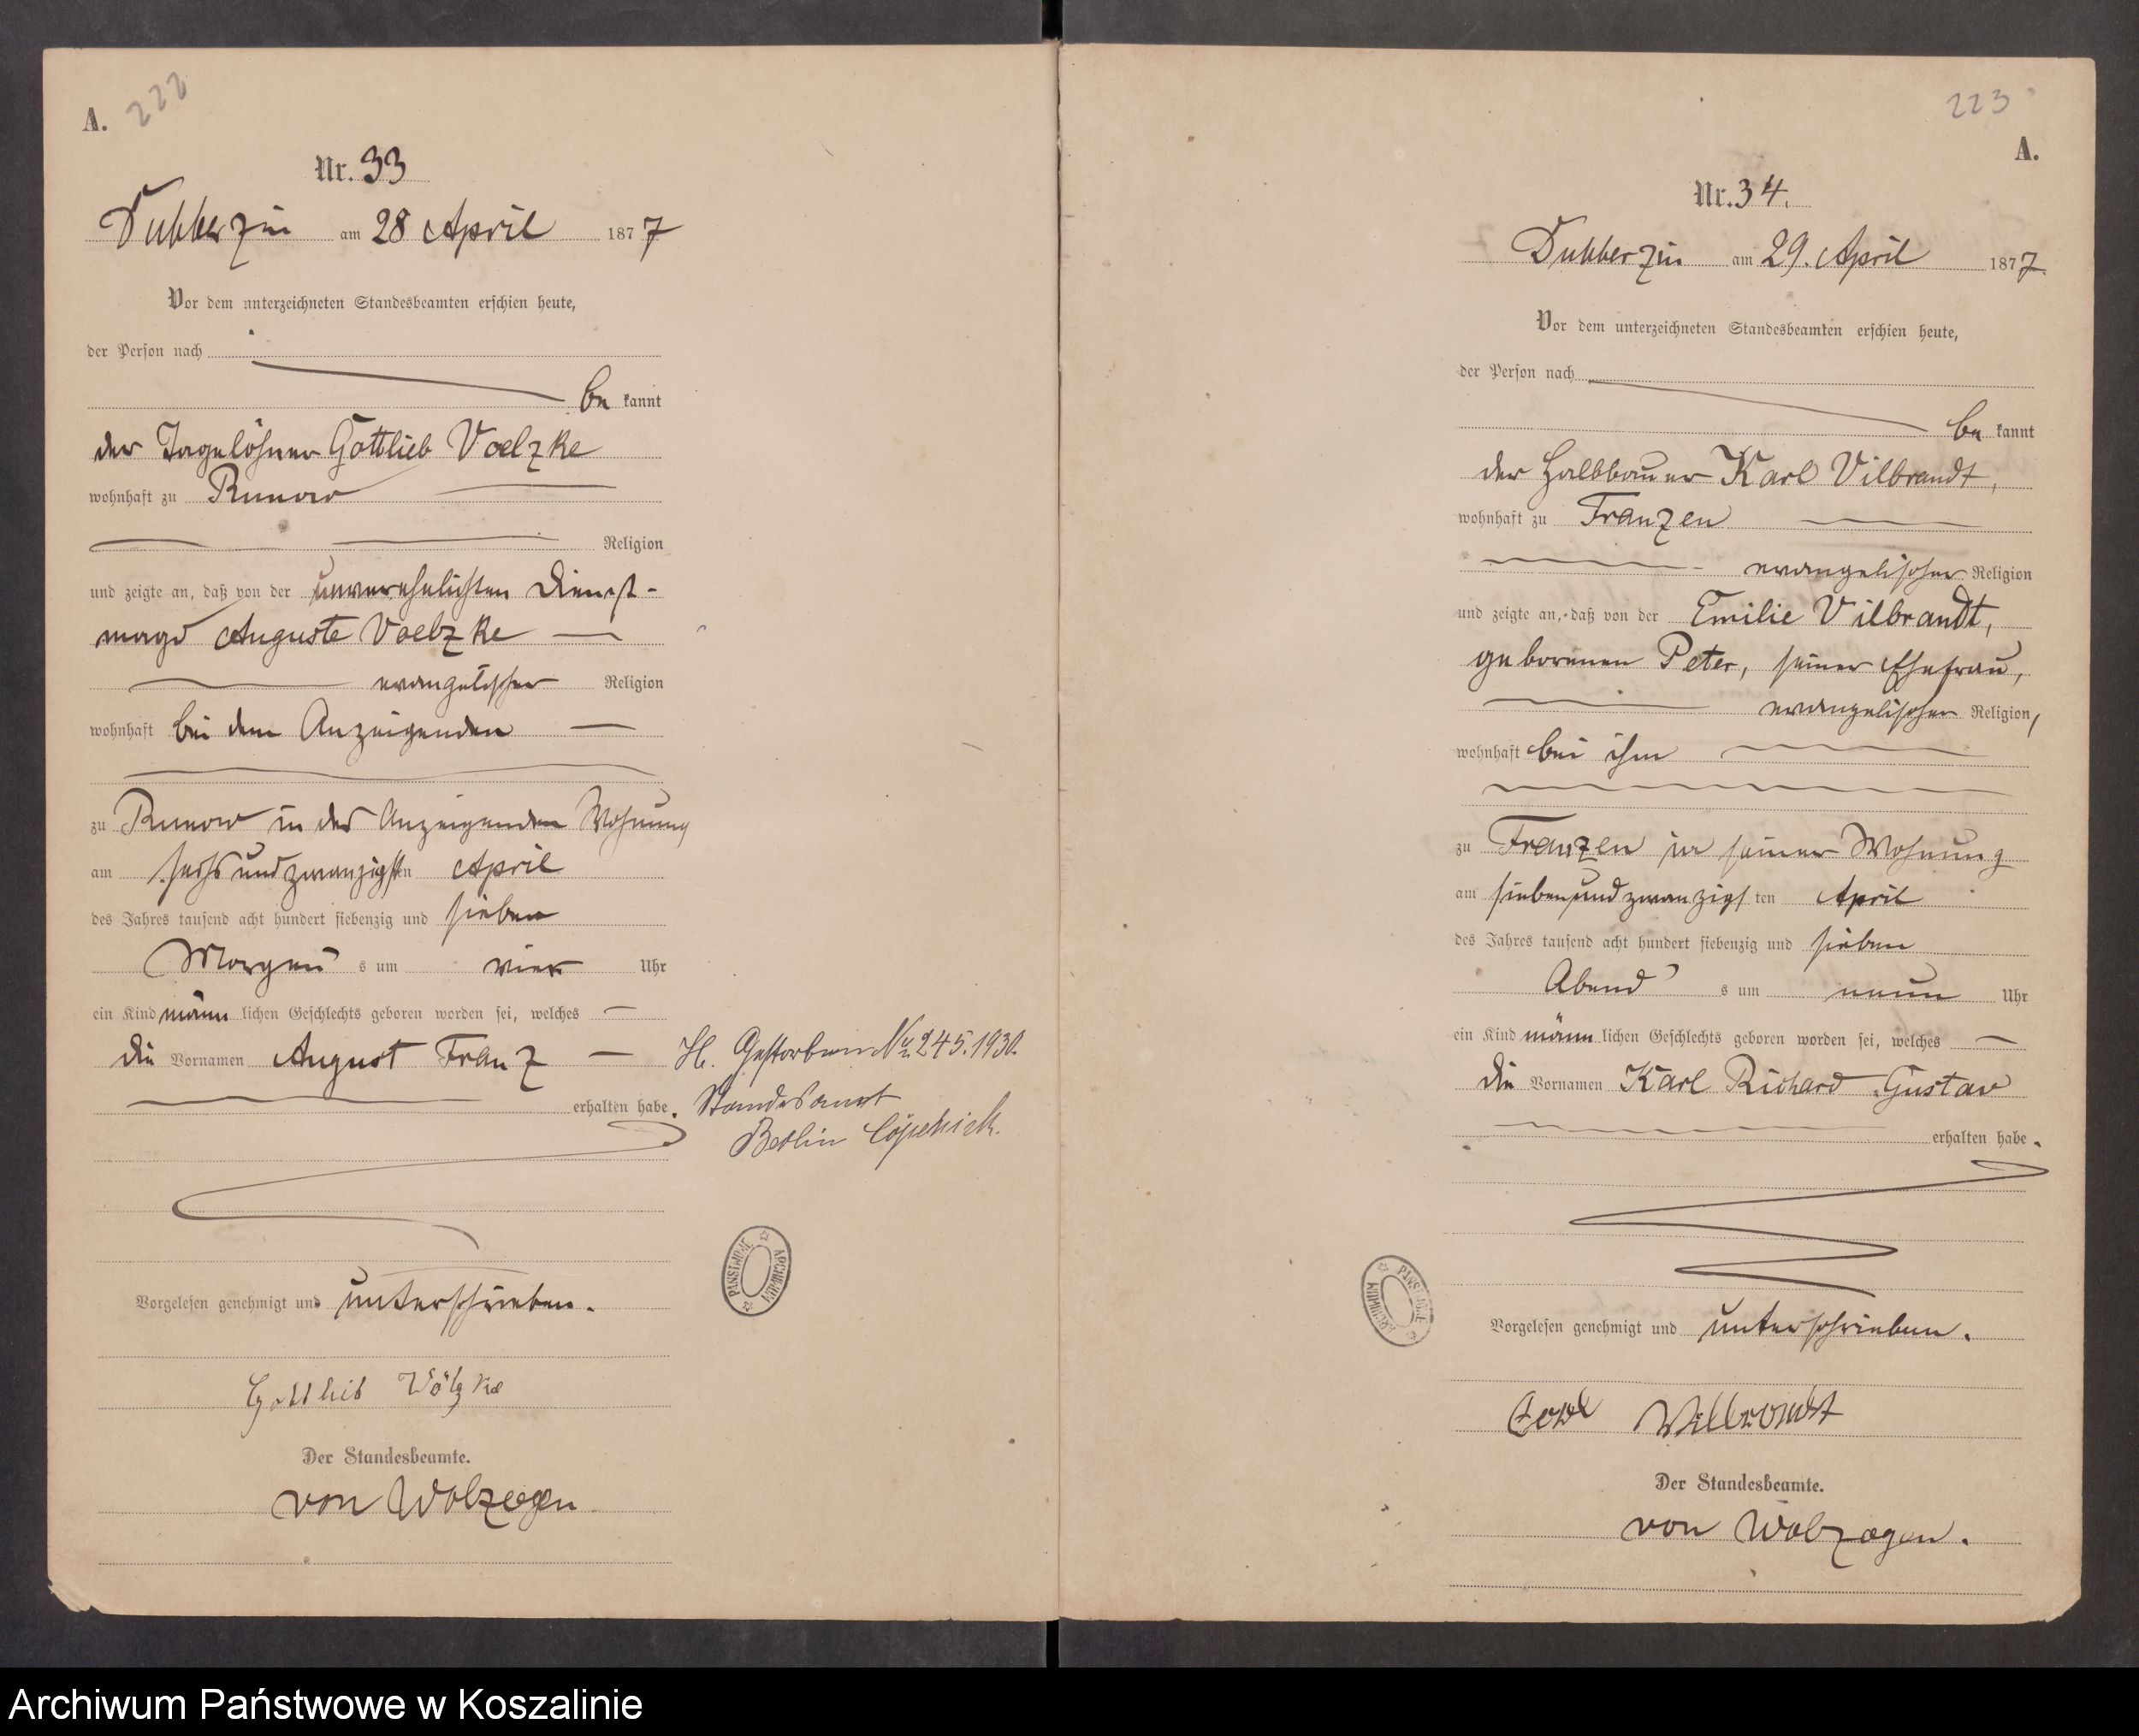 A.
222
Nr. 33
Dubberzin am 28 April 1877
Vor dem unterzeichneten Standesbeamten erschien heute,
der Person nach
be kannt
der Tagelöhner Gottlieb Voelzke
wohnhaft zu Runow
Religion
und zeigte an, daß von der unverehelichten Dienst-
magd Auguste Voelzke
evangelischer Religion
wohnhaft bei dem Anzeigenden
zu Runow in des Anzeigenden Wohnung
am sechsundzwanzigsten April
des Jahres tausend acht hundert siebenzig und sieben
Morgen s um vier Uhr
ein Kind männ lichen Geschlechts geboren worden sei, welches
die Vornamen August Franz
erhalten habe.
H. Gestorben Nr. 245.1930.
Standesamt
Berlin Cöpenick.
Vorgelesen genehmigt und unterschrieben.
Gottlieb Völzke
Der Standesbeamte.
von Wolzogen
PAŃSTWOWE ARCHIWUM
223
A.
Nr. 34.
Dubberzin am 29. April 1877.
Vor dem unterzeichneten Standesbeamten erschien heute,
der Person nach
be kannt
der Halbbauer Karl Vilbrandt,
wohnhaft zu Franzen
evangelischer Religion
und zeigte an, daß von der Emilie Vilbrandt,
geborenen Peter, seiner Ehefrau,
evangelischer Religion,
wohnhaft bei ihm
zu Franzen in seiner Wohnung
am siebenundzwanzigs ten April
des Jahres tausend acht hundert siebenzig und sieben
Abend s um neun Uhr
ein Kind männ lichen Geschlechts geboren worden sei, welches
die Vornamen Karl Richard Gustav
erhalten habe.
PAŃSTWOWE ARCHIWUM
Vorgelesen genehmigt und unterschrieben.
Carl Willbrandt
Der Standesbeamte.
von Wolzogen.
Archiwum Państwowe w Koszalinie